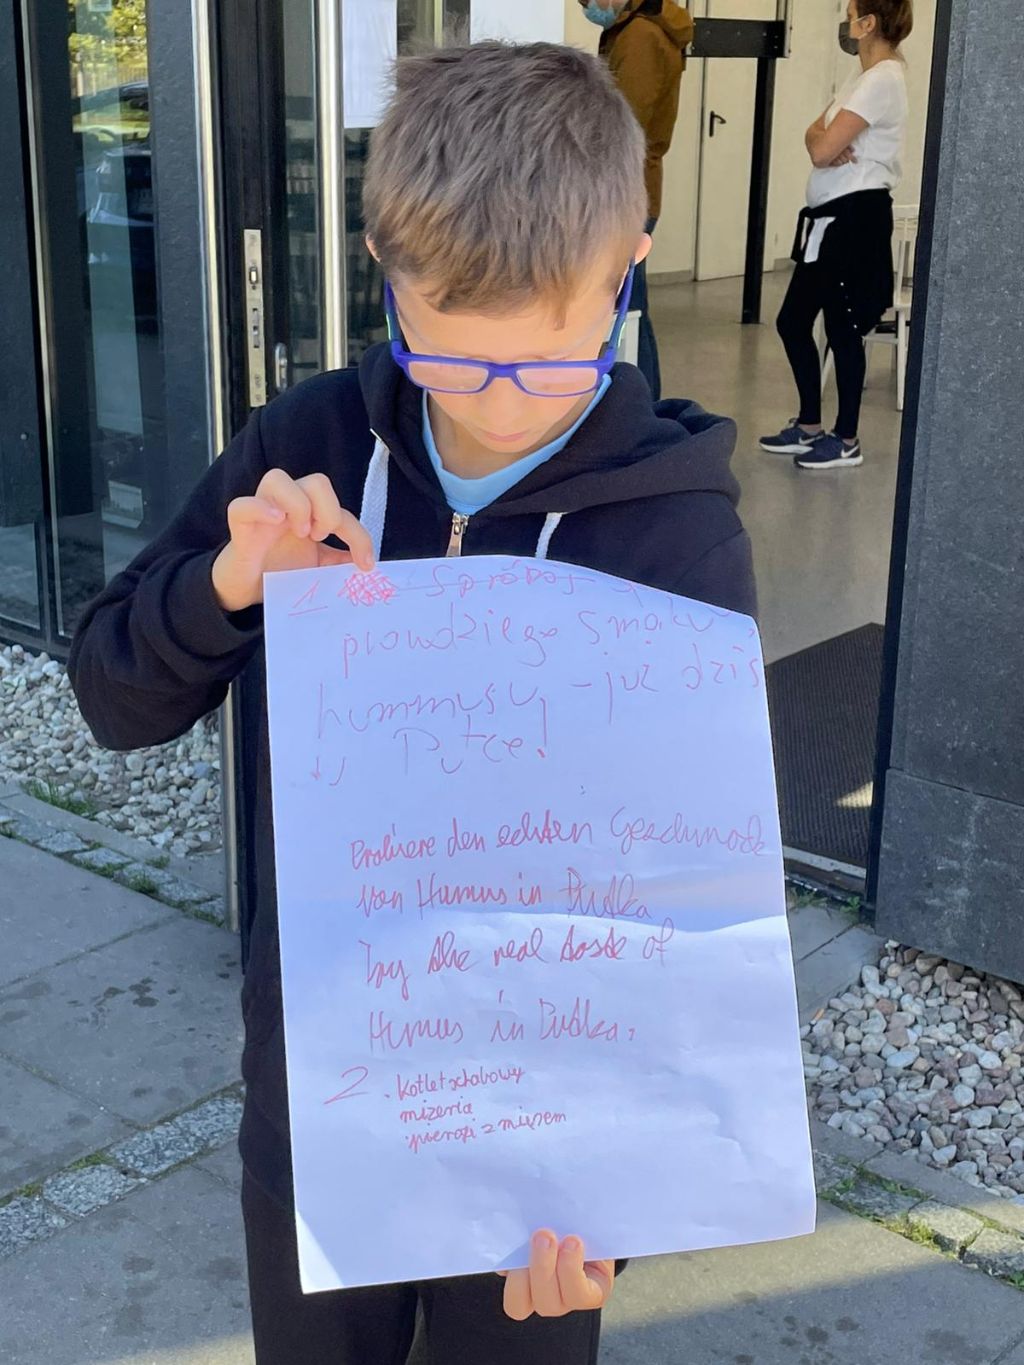 1 Spróbój
prowdziego smaku
hummusu, - już dziś
w Putce!
Probiere den echten Geschmack
von Humus in Putka
Try the real taste of
Humus in Putka.
2. Kotlet schabowy
mizeria
pierogi z mięsem